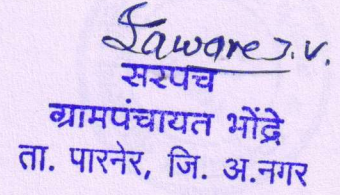 Laware J.V.
सरपंच
ग्रामपंचायत भोंद्रे
ता. पारनेर, जि. अ.नगर